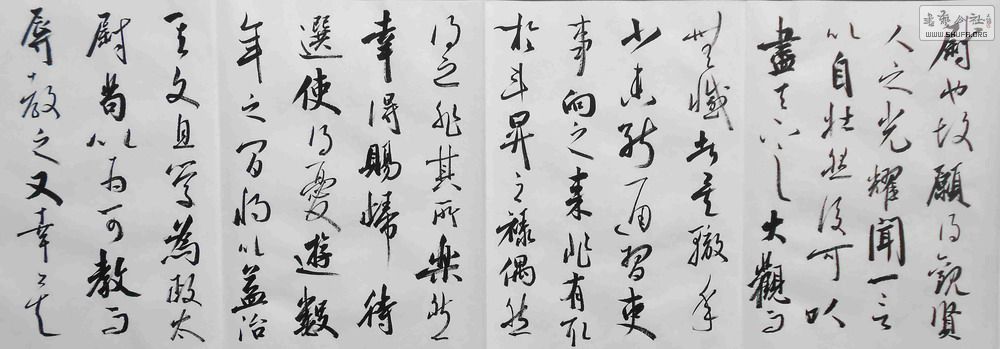 尉也故願得觀賢
人之光耀聞一言
以自壯然後可以
盡天下之大觀而
無憾者矣轍年
少未能通習吏
事向之來非有取
於斗昇之祿偶然
得之非其所樂然
幸得賜歸待
選使得憂遊數
年之間將以益治
其文且學為政太
尉苟以為可教而
辱教之又幸矣
書藝創社
WWW.SHUFA.ORG